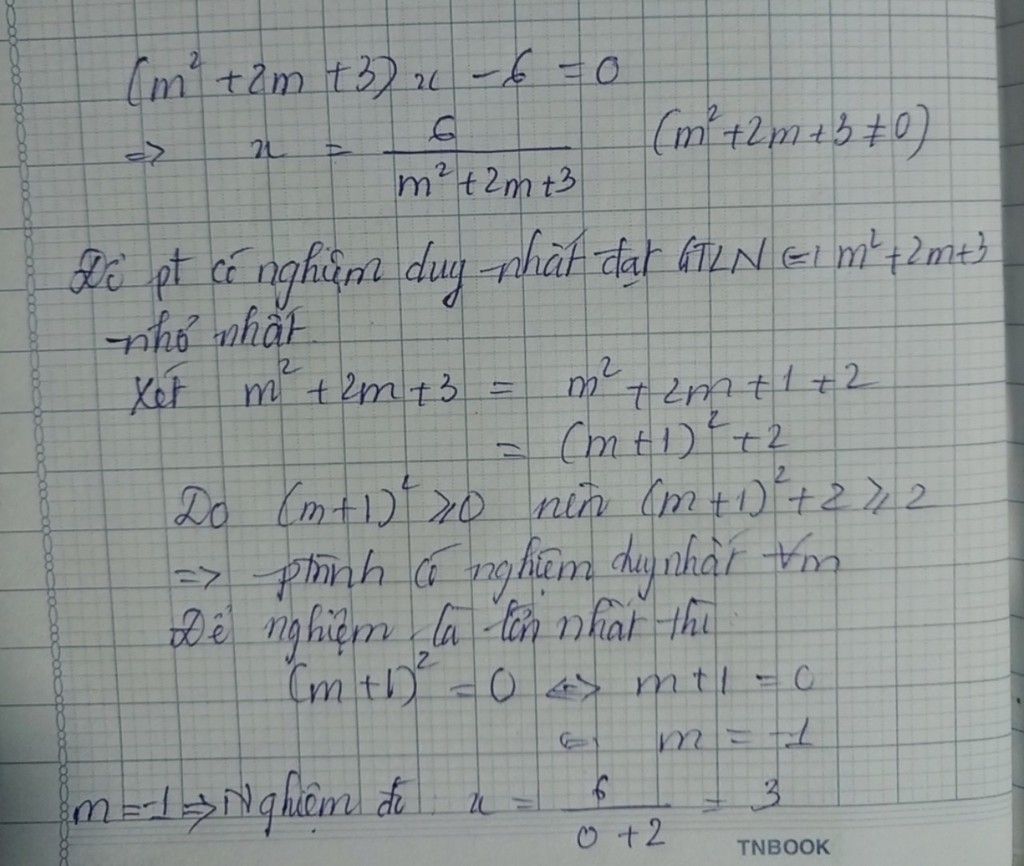 (m² + 2m + 3) x - 6 = 0
=> x = 6 / (m² + 2m + 3) (m² + 2m + 3 ≠ 0)
Để pt có nghiệm duy nhất đạt GTLN <=> m² + 2m + 3
nhỏ nhất
Xét m² + 2m + 3 = m² + 2m + 1 + 2
= (m + 1)² + 2
Do (m+1)² ≥ 0 nên (m+1)² + 2 ≥ 2
=> ptrình có nghiệm duy nhất ∀m
Để nghiệm là lớn nhất thì
(m + 1)² = 0 <=> m + 1 = 0
<=> m = -1
m = -1 => Nghiệm x = 6 / (0 + 2) = 3
TNBOOK